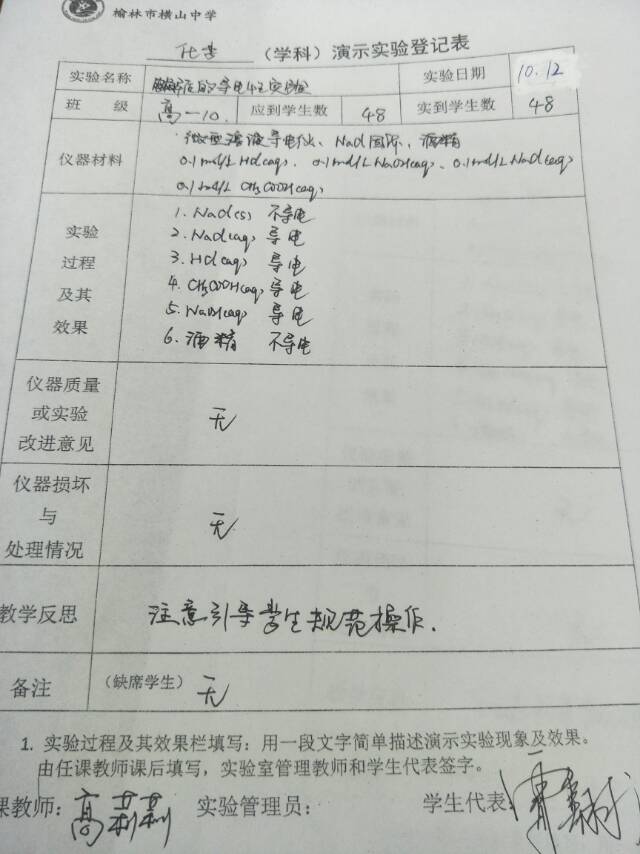 榆林市横山中学
化学 (学科) 演示实验登记表
实验名称 溶液的导电性实验 实验日期 10.12
班 级 高一10. 应到学生数 48 实到学生数 48
仪器材料
微型溶液导电仪、NaCl固体、酒精
0.1mol/L HCl(aq)、0.1mol/L NaOH(aq)、0.1mol/L NaCl(aq)
0.1mol/L CH₃COOH(aq)
实验
过程
及其
效果
1. NaCl(s) 不导电
2. NaCl(aq) 导电
3. HCl(aq) 导电
4. CH₃COOH(aq) 导电
5. NaOH(aq) 导电
6. 酒精 不导电
仪器质量
或实验
改进意见
无
仪器损坏
与
处理情况
无
教学反思 注意引导学生规范操作.
备注 (缺席学生) 无
1. 实验过程及其效果栏填写：用一段文字简单描述演示实验现象及效果。
由任课教师课后填写，实验室管理教师和学生代表签字。
课教师: 高莉莉 实验管理员: 学生代表: